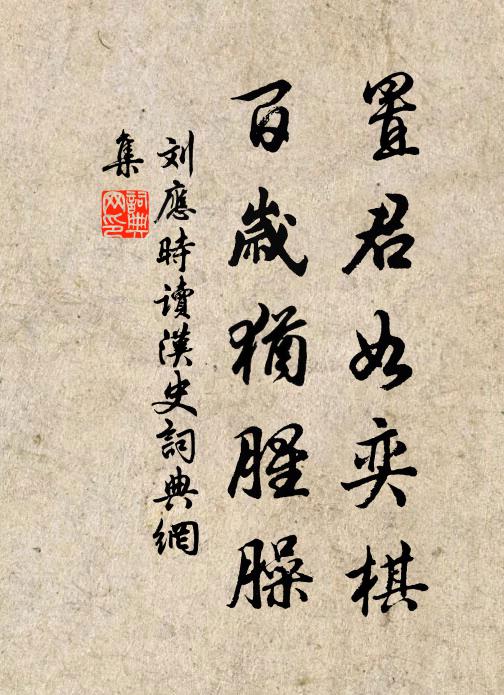 置君如奕棋
百歲猶腥臊
刘應時讀漢史詞典網
集
詞典
网印